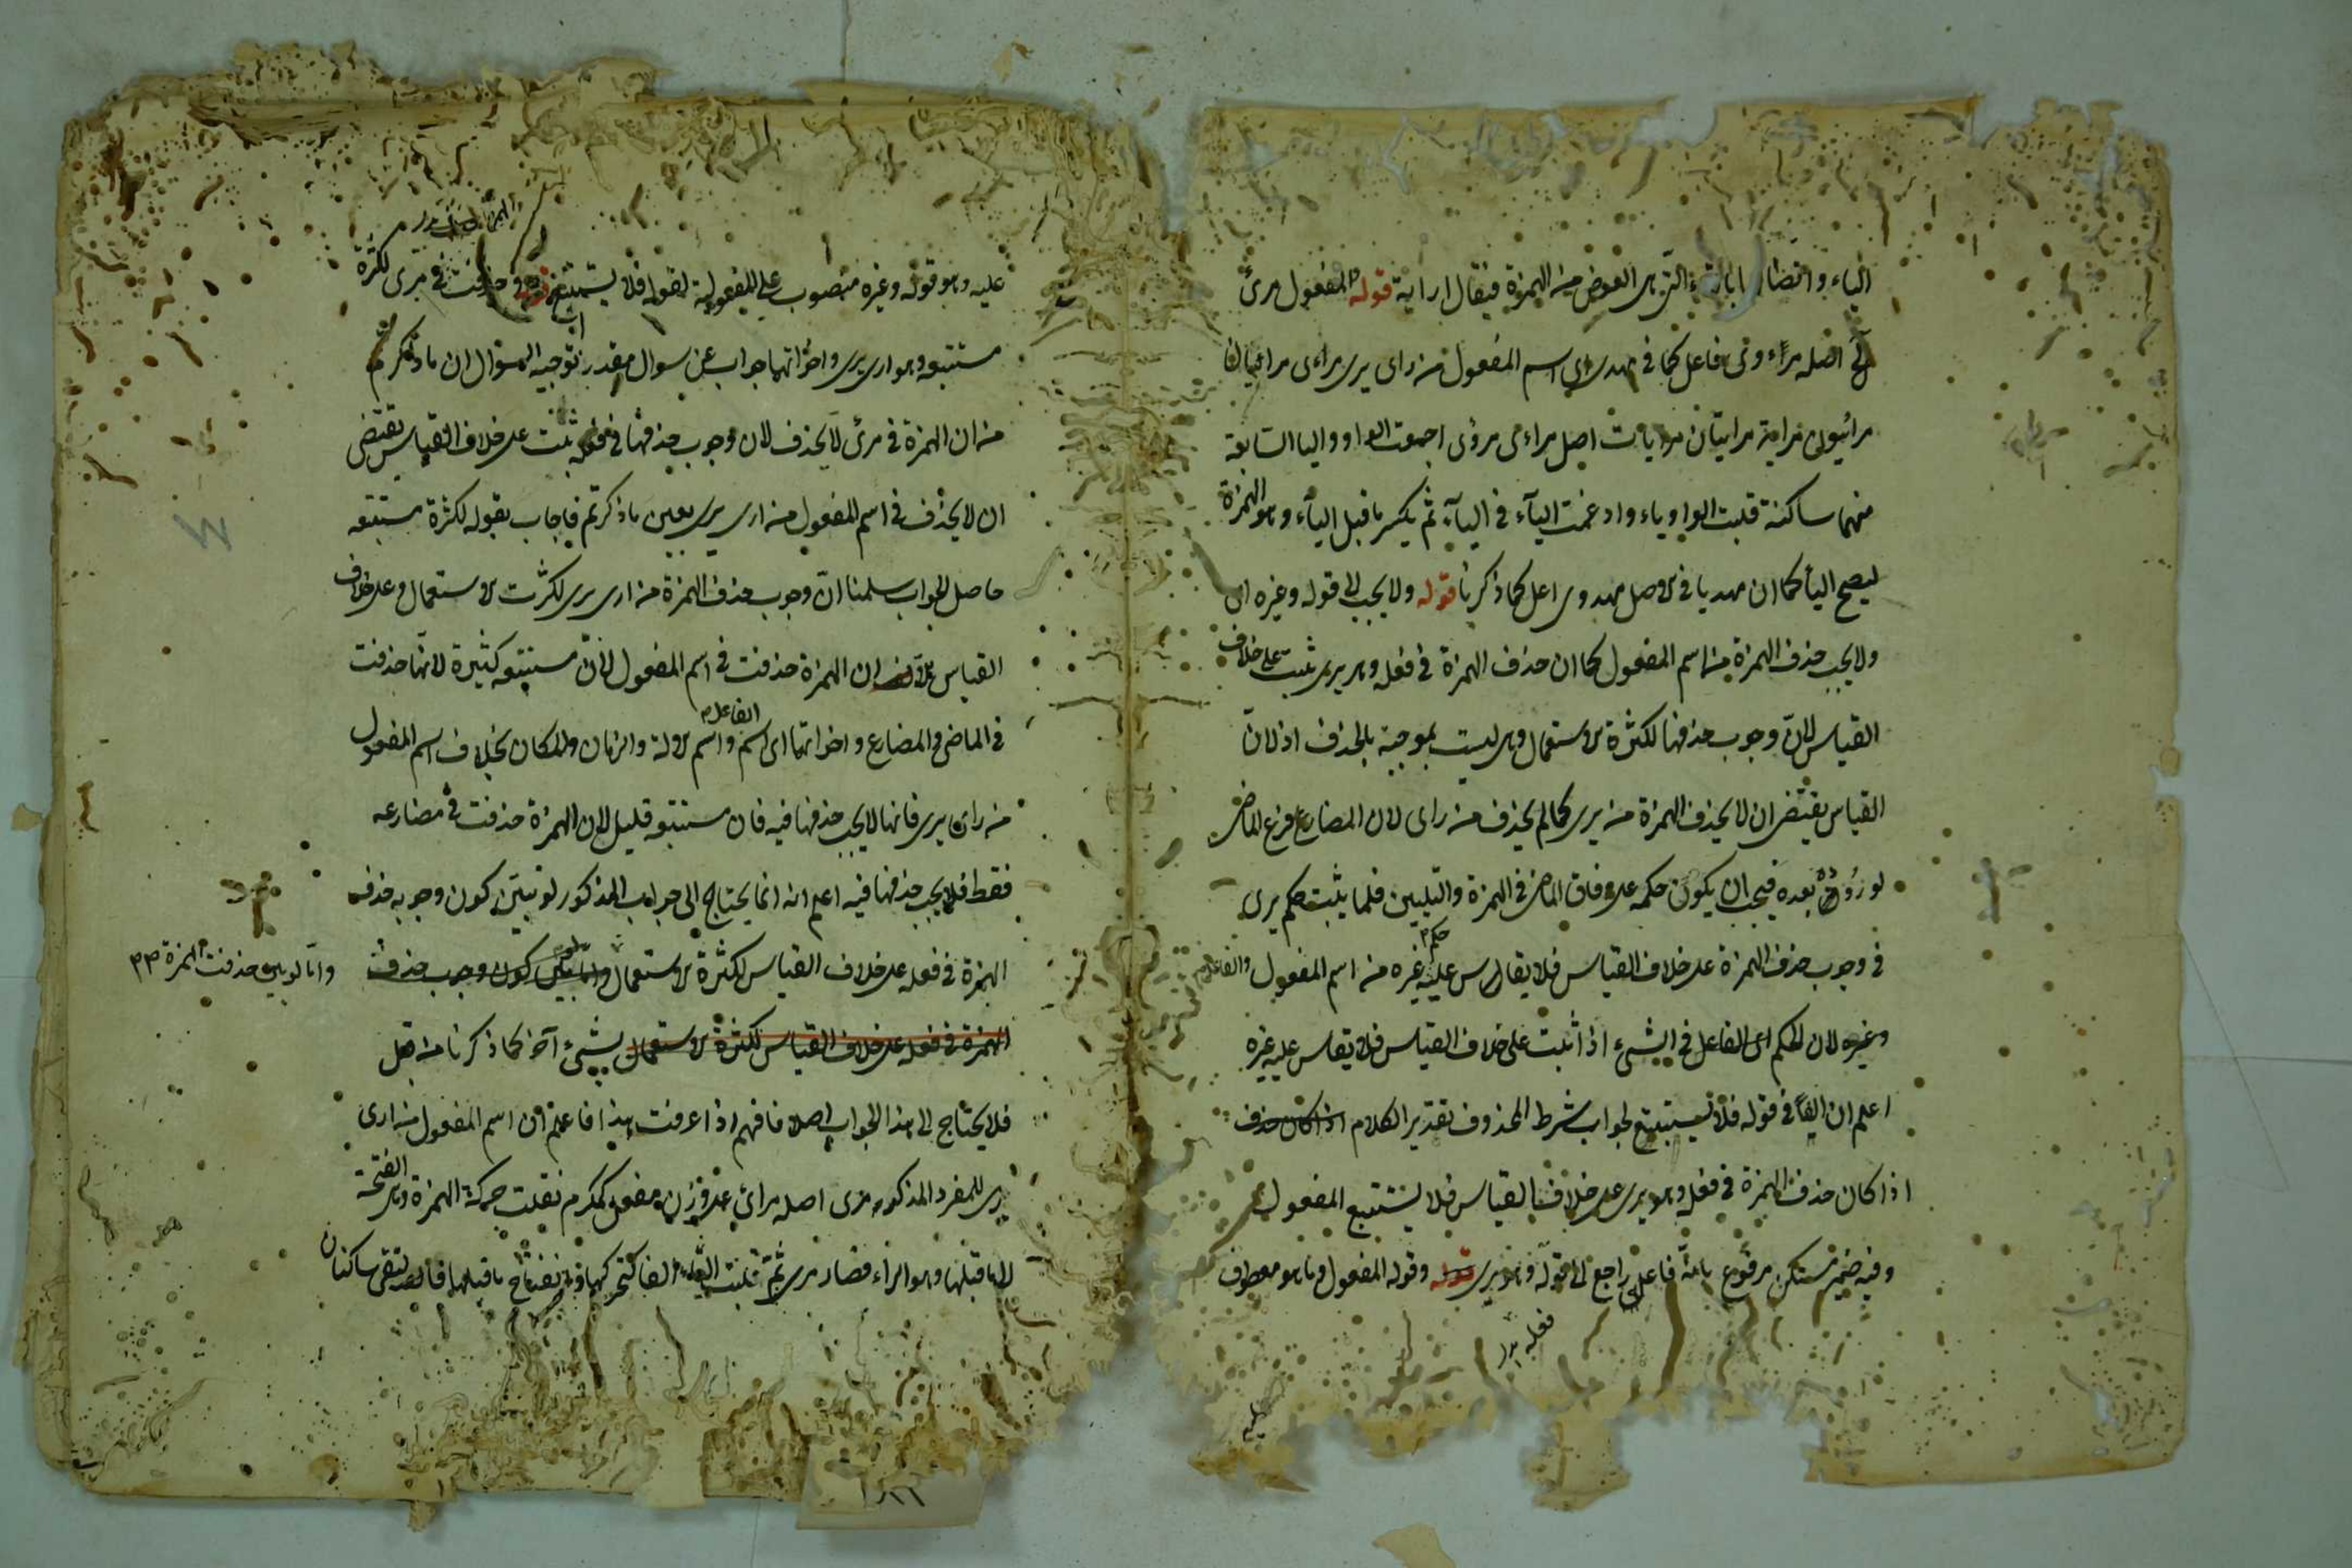 الياء وانضا التي هي العوض من الهمزة فيقال اراية قوله المفعول مرئ
الى اصله مراءوى فاعل كما في مهدى اى اسم المفعول من راى يرى مراءى مرائيان
مرائيون مراية مرايتان مرايات اصل مراءى مرؤى اجمعت الواو واليا السابقة
منهما ساكنة قلبت الواو ياء وادغمت الياء في الياء ثم يكسر ما قبل الياء وهو الهمزة
ليصح اليأ كما ان مهديا في الاصل مهدوى اعل كما ذكرنا قوله ولا يجب الى قوله وغيره اى
ولا يجب حذف الهمزة من اسم المفعول كما ان حذف الهمزة في فعله وهو يرى ثبت على خلاف
القياس لانّ وجوب حذفها لكثرة الاستعمال وهى ليست بموجبة بالحذف اذ لانّ
القياس يقتضى ان لا يحذف الهمزة من يرى كما لم يحذف من راى لان المضارع فرع الماضى
لو رُوده بعده فيجب ان يكون حكمه على وفاق الماضى في الهمزة والتليين فلما يثبت حكم يرى
في وجوب حذف الهمزة على خلاف القياس فلا يقاس عليه حكم غيره من اسم المفعول والفاعل
وغيره لان الحكم اى الفاعل في الشىء اذا ثبت على خلاف القياس فلا يقاس عليه غيره
اعلم ان الفاً في قوله فلا يستتبع لجواب شرط المحذوف تقدير الكلام اذا كان حذف
اذا كان حذف الهمزة في فعل وهو يرى على خلاف القياس فلا يستتبع المفعول
وفيه ضمير مستكن مرفوع بانه فاعل راجع الى قوله وهو يرى قوله وقوله المفعول وما هو معطوف
فعله
عليه
عليه وهو قوله وغيره منصوب على المفعولية لقوله فلا يستتبع قوله حذفت في مرى لكثرة
مستتبعه وهو ارى يرى واخواتها جواب عن سوال مقدر توجيه السؤال ان ما ذكرتم
من ان الهمزة في مرئ لا يحذف لان وجوب حذفها في فعله ثبت على خلاف القياس يقتضى
ان لا يحذف في اسم المفعول من ارى يرى بعين ما ذكرتم فاجاب بقوله لكثرة مستتبعه
حاصل الجواب سلمنا انّ وجوب حذف الهمزة من ارى يرى لكثرت الاستعمال وعلى خلاف
القياس الا ان الهمزة حذفت في اسم المفعول لانّ مستتبعه كثيرة لانها حذفت
في الماضى والمضارع واخواتها اى اسم الفاعل واسم الالة والزمان والمكان بخلاف اسم المفعول
من راى يرى فانها لا يجب حذفها فيه فان مستتبعه قليل لان الهمزة حذفت في مضارعه
فقط فلا يجب حذفها فيه اعلم انه انما يحتاج الى جواب المذكور لو تبيّن كون وجوبه حذف
الهمزة في فعله على خلاف القياس لكثرة الاستعمال واما لو تبين كون وجوب حذف
وامّا لو بين حذفت الهمزة
الهمزة في فعله على خلاف القياس لكثرة الاستعمال بشىء آخر كما ذكرنا من قبل
فلا يحتاج الى هذا الجواب اصلا فافهم اذا عرفت هذا فاعلم ان اسم المفعول من ارى
يرى للمفرد المذكور مرى اصله مرائ على وزن مفعل كمكرم نقلت حركة الهمزة وهى الفتحة
الى ما قبلها وهو الراء فصار مرى ثمّ قلبت الياء الفا لتحركها وانفتاح ما قبلها فالتقى ساكنان